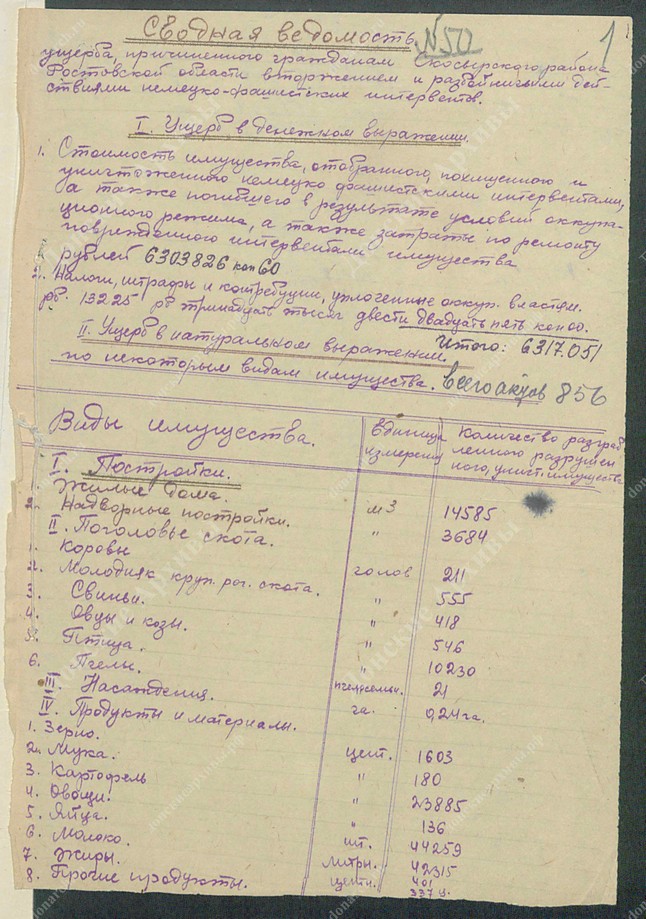 Сводная ведомость №50
1
ущерба причиненного гражданам Скосырского района
Ростовской области вторжением и разбойничьими дей-
ствиями немецко-фашистских интервентов.
I. Ущерб в денежном выражении.
1. Стоимость имущества, отобранного, похищенного и
уничтоженного немецко фашистскими интервентами,
а также погибшего в результате условий оккупа-
ционного режима, а также затраты по ремонту
поврежденного интервентами имущества
рублей 6303826 коп 60
2. Налоги, штрафы и контребуции, уплоченные оккуп. властям.
рб. 13225 рб тринадцать тысяч двести двадцать пять коп 00.
Итого: 6317.051
II. Ущерб в натуральном выражении.
по некоторым видам имущества. Всего актов 856
Виды имущества.
Единица измерения
Количество разграб
ленного разрушен
ного, уничт. имущества
I. Постройки.
1. Жилые дома. м3 14585
2. Надворные постройки. " 3684
II. Поголовье скота.
1. Коровы голов 211
2. Молодняк круп. рог. скота. " 555
3. Свиньи. " 418
4. Овцы и козы. " 546
5. Птица. " 10230
6. Пчелы. пчелосемьи. 21
III. Насаждения. га. 0,24 га.
IV. Продукты и материалы.
1. Зерно. цент. 1603
2. Мука. " 180
3. Картофель " 23885
4. Овощи. " 136
5. Яйца. шт. 44259
6. Молоко. литры. 42315
7. Жиры. центн. 401
8. Прочие продукты. 337 ц.